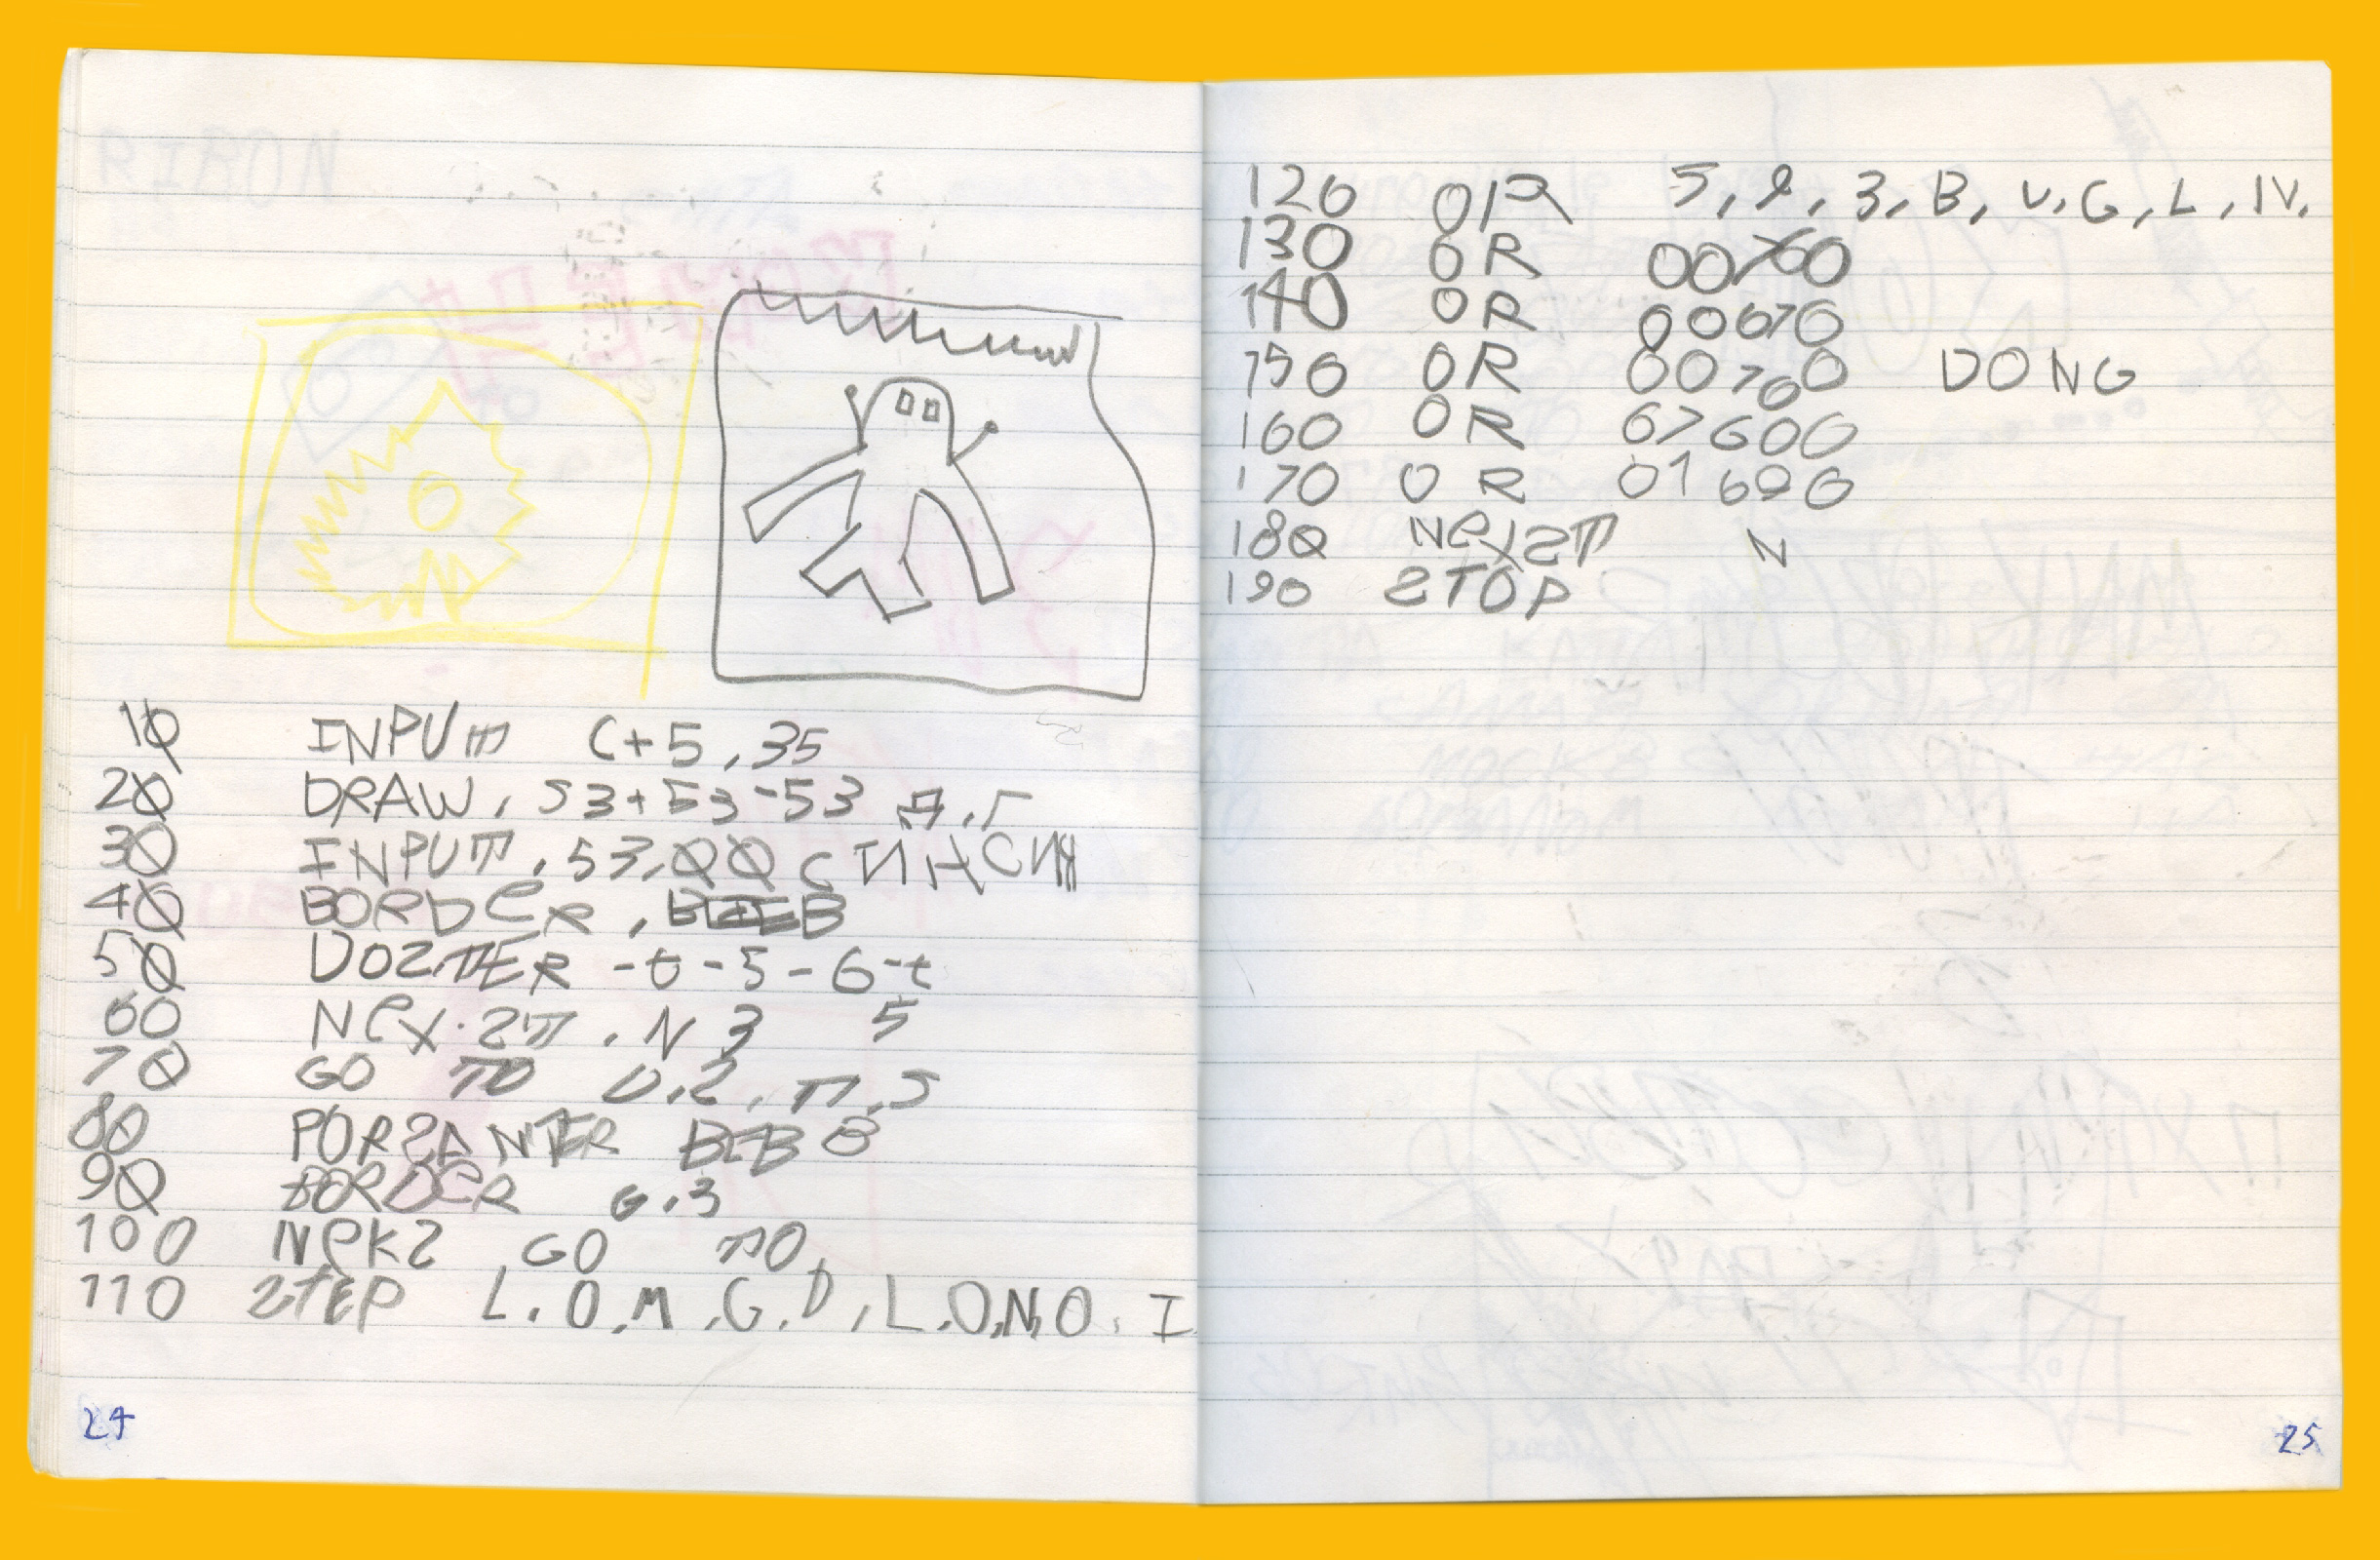 10 INPUT C+5,35
20 DRAW, 53+53-53 Д,Г
30 INPUT, 53,00 СИНСИЯ
40 BORDER, B
50 DOZTER -t-5-6-t
60 NEX.2T . N 3 5
70 GO TO U.2, T.S
80 PORZANTER B
90 BORDER G.3
100 NEK2 GO TO,
110 2TEP L.O.M.G.D,L.O.N.O. I
24
120 OR 5, 2, 3, B, U, G, L, IV.
130 OR 00760
140 OR 00670
150 OR 00700 DONG
160 OR 67600
170 OR 01600
180 NEX2T N
190 2TOP
25